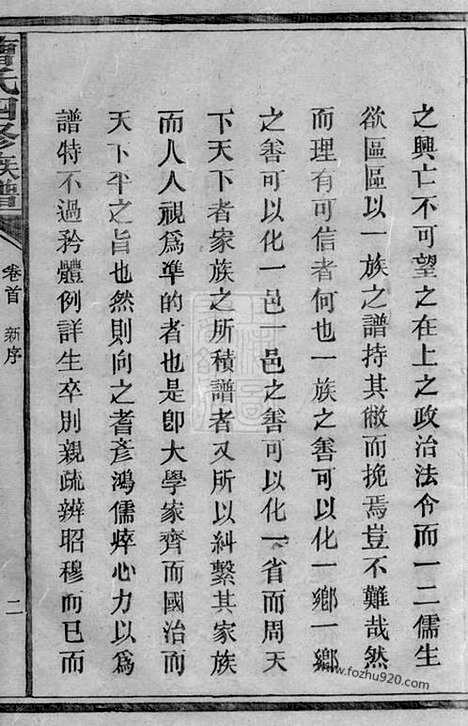 之興亡不可望之在上之政治法令而一二儒生
欲區區以一族之譜持其敝而挽焉豈不難哉然
而理有可信者何也一族之善可以化一鄉一鄉
之善可以化一邑一邑之善可以化一省而周天
下天下者家族之所積譜者又所以糾繫其家族
而人人視爲準的者也是卽大學家齊而國治而
天下平之旨也然則向之耆彥鴻儒瘁心力以爲
譜特不過矜體例詳生卒別親疏辨昭穆而已而
氏四修族譜
卷首 新序
二
www.fozhu920.com